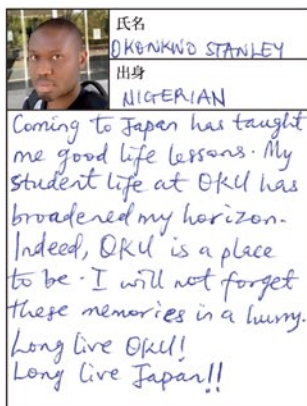 氏名
OKONKWO STANLEY
出身
NIGERIAN
Coming to Japan has taught
me good life lessons. My
student life at OKU has
broadened my horizon.
Indeed, OKU is a place
to be. I will not forget
these memories in a hurry.
Long live OKU!
Long live Japan!!